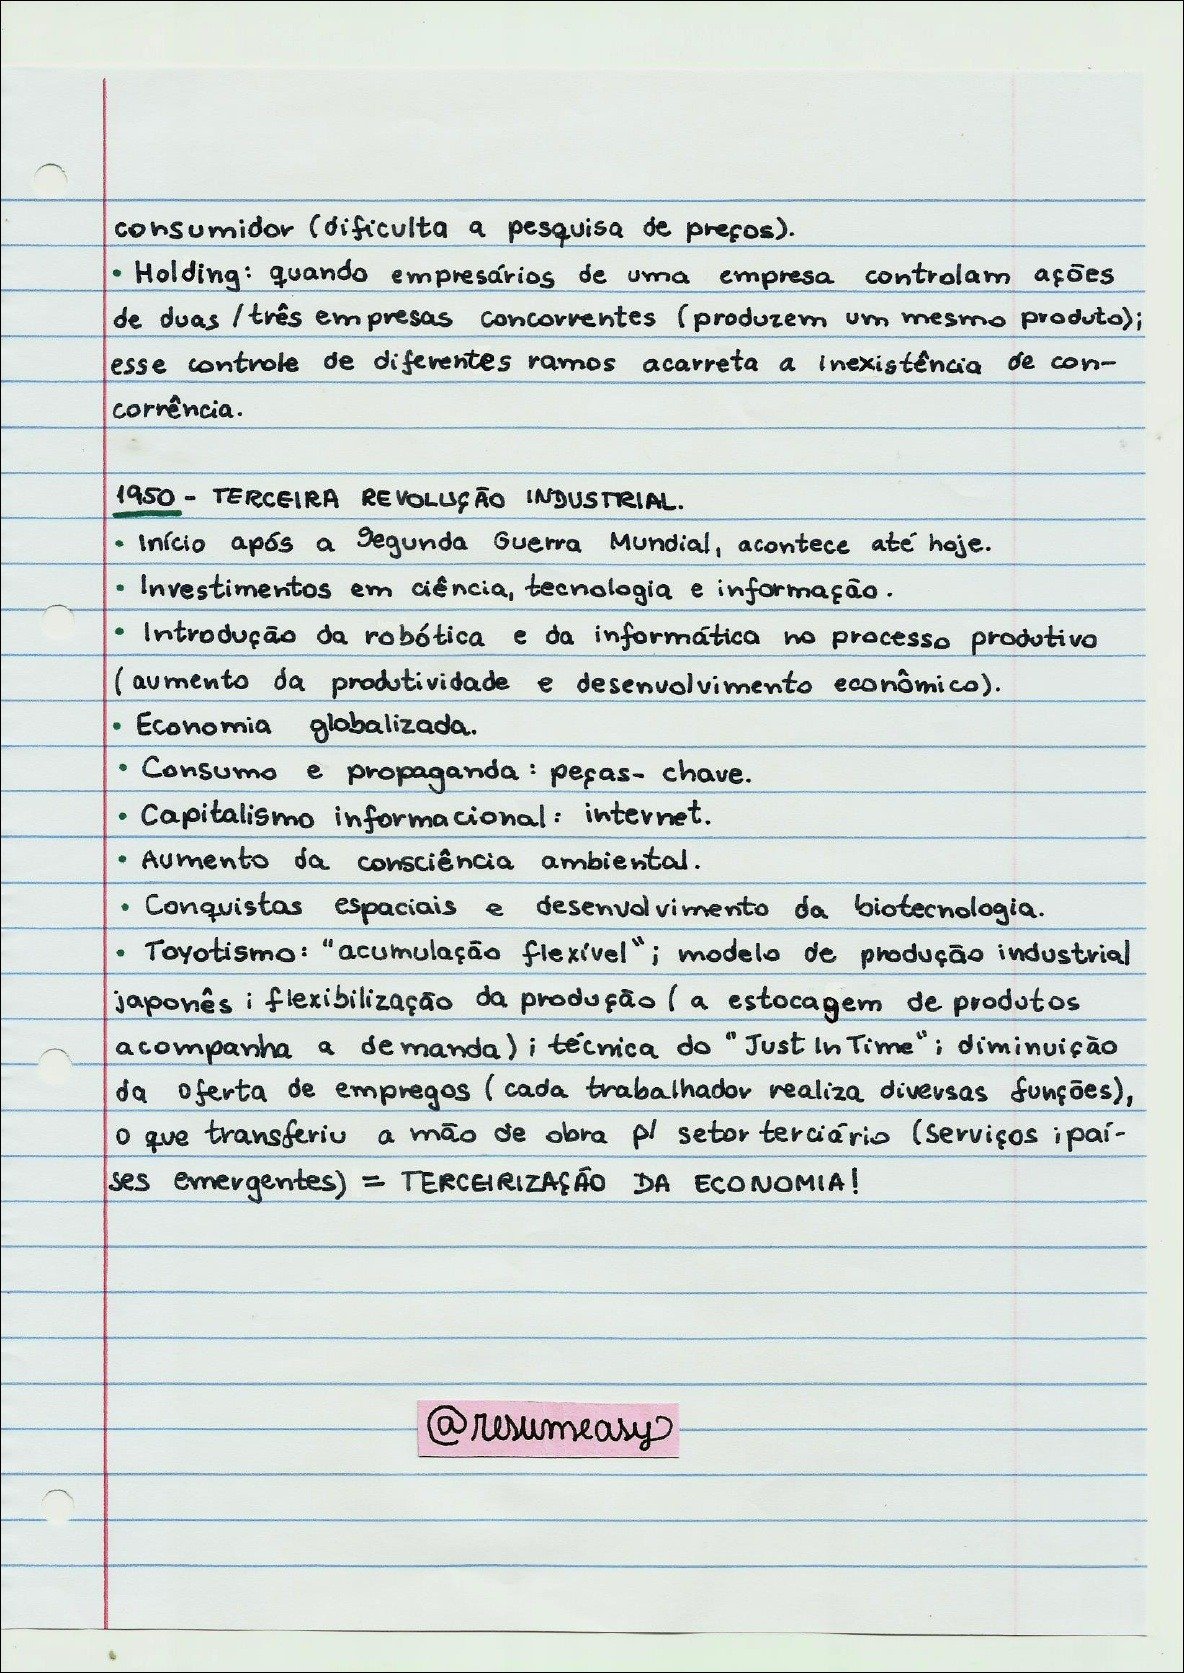 consumidor (dificulta a pesquisa de preços).
• Holding: quando empresários de uma empresa controlam ações
de duas/três empresas concorrentes (produzem um mesmo produto);
esse controle de diferentes ramos acarreta a inexistência de con-
corrência.
1950 - TERCEIRA REVOLUÇÃO INDUSTRIAL.
• Início após a Segunda Guerra Mundial, acontece até hoje.
• Investimentos em ciência, tecnologia e informação.
• Introdução da robótica e da informática no processo produtivo
(aumento da produtividade e desenvolvimento econômico).
• Economia globalizada.
• Consumo e propaganda: peças-chave.
• Capitalismo informacional: internet.
• Aumento da consciência ambiental.
• Conquistas espaciais e desenvolvimento da biotecnologia.
• Toyotismo: "acumulação flexível"; modelo de produção industrial
japonês; flexibilização da produção (a estocagem de produtos
acompanha a demanda); técnica do "Just In Time"; diminuição
da oferta de empregos (cada trabalhador realiza diversas funções),
o que transferiu a mão de obra p/ setor terciário (serviços; paí-
ses emergentes) = TERCEIRIZAÇÃO DA ECONOMIA!
@resumeasy